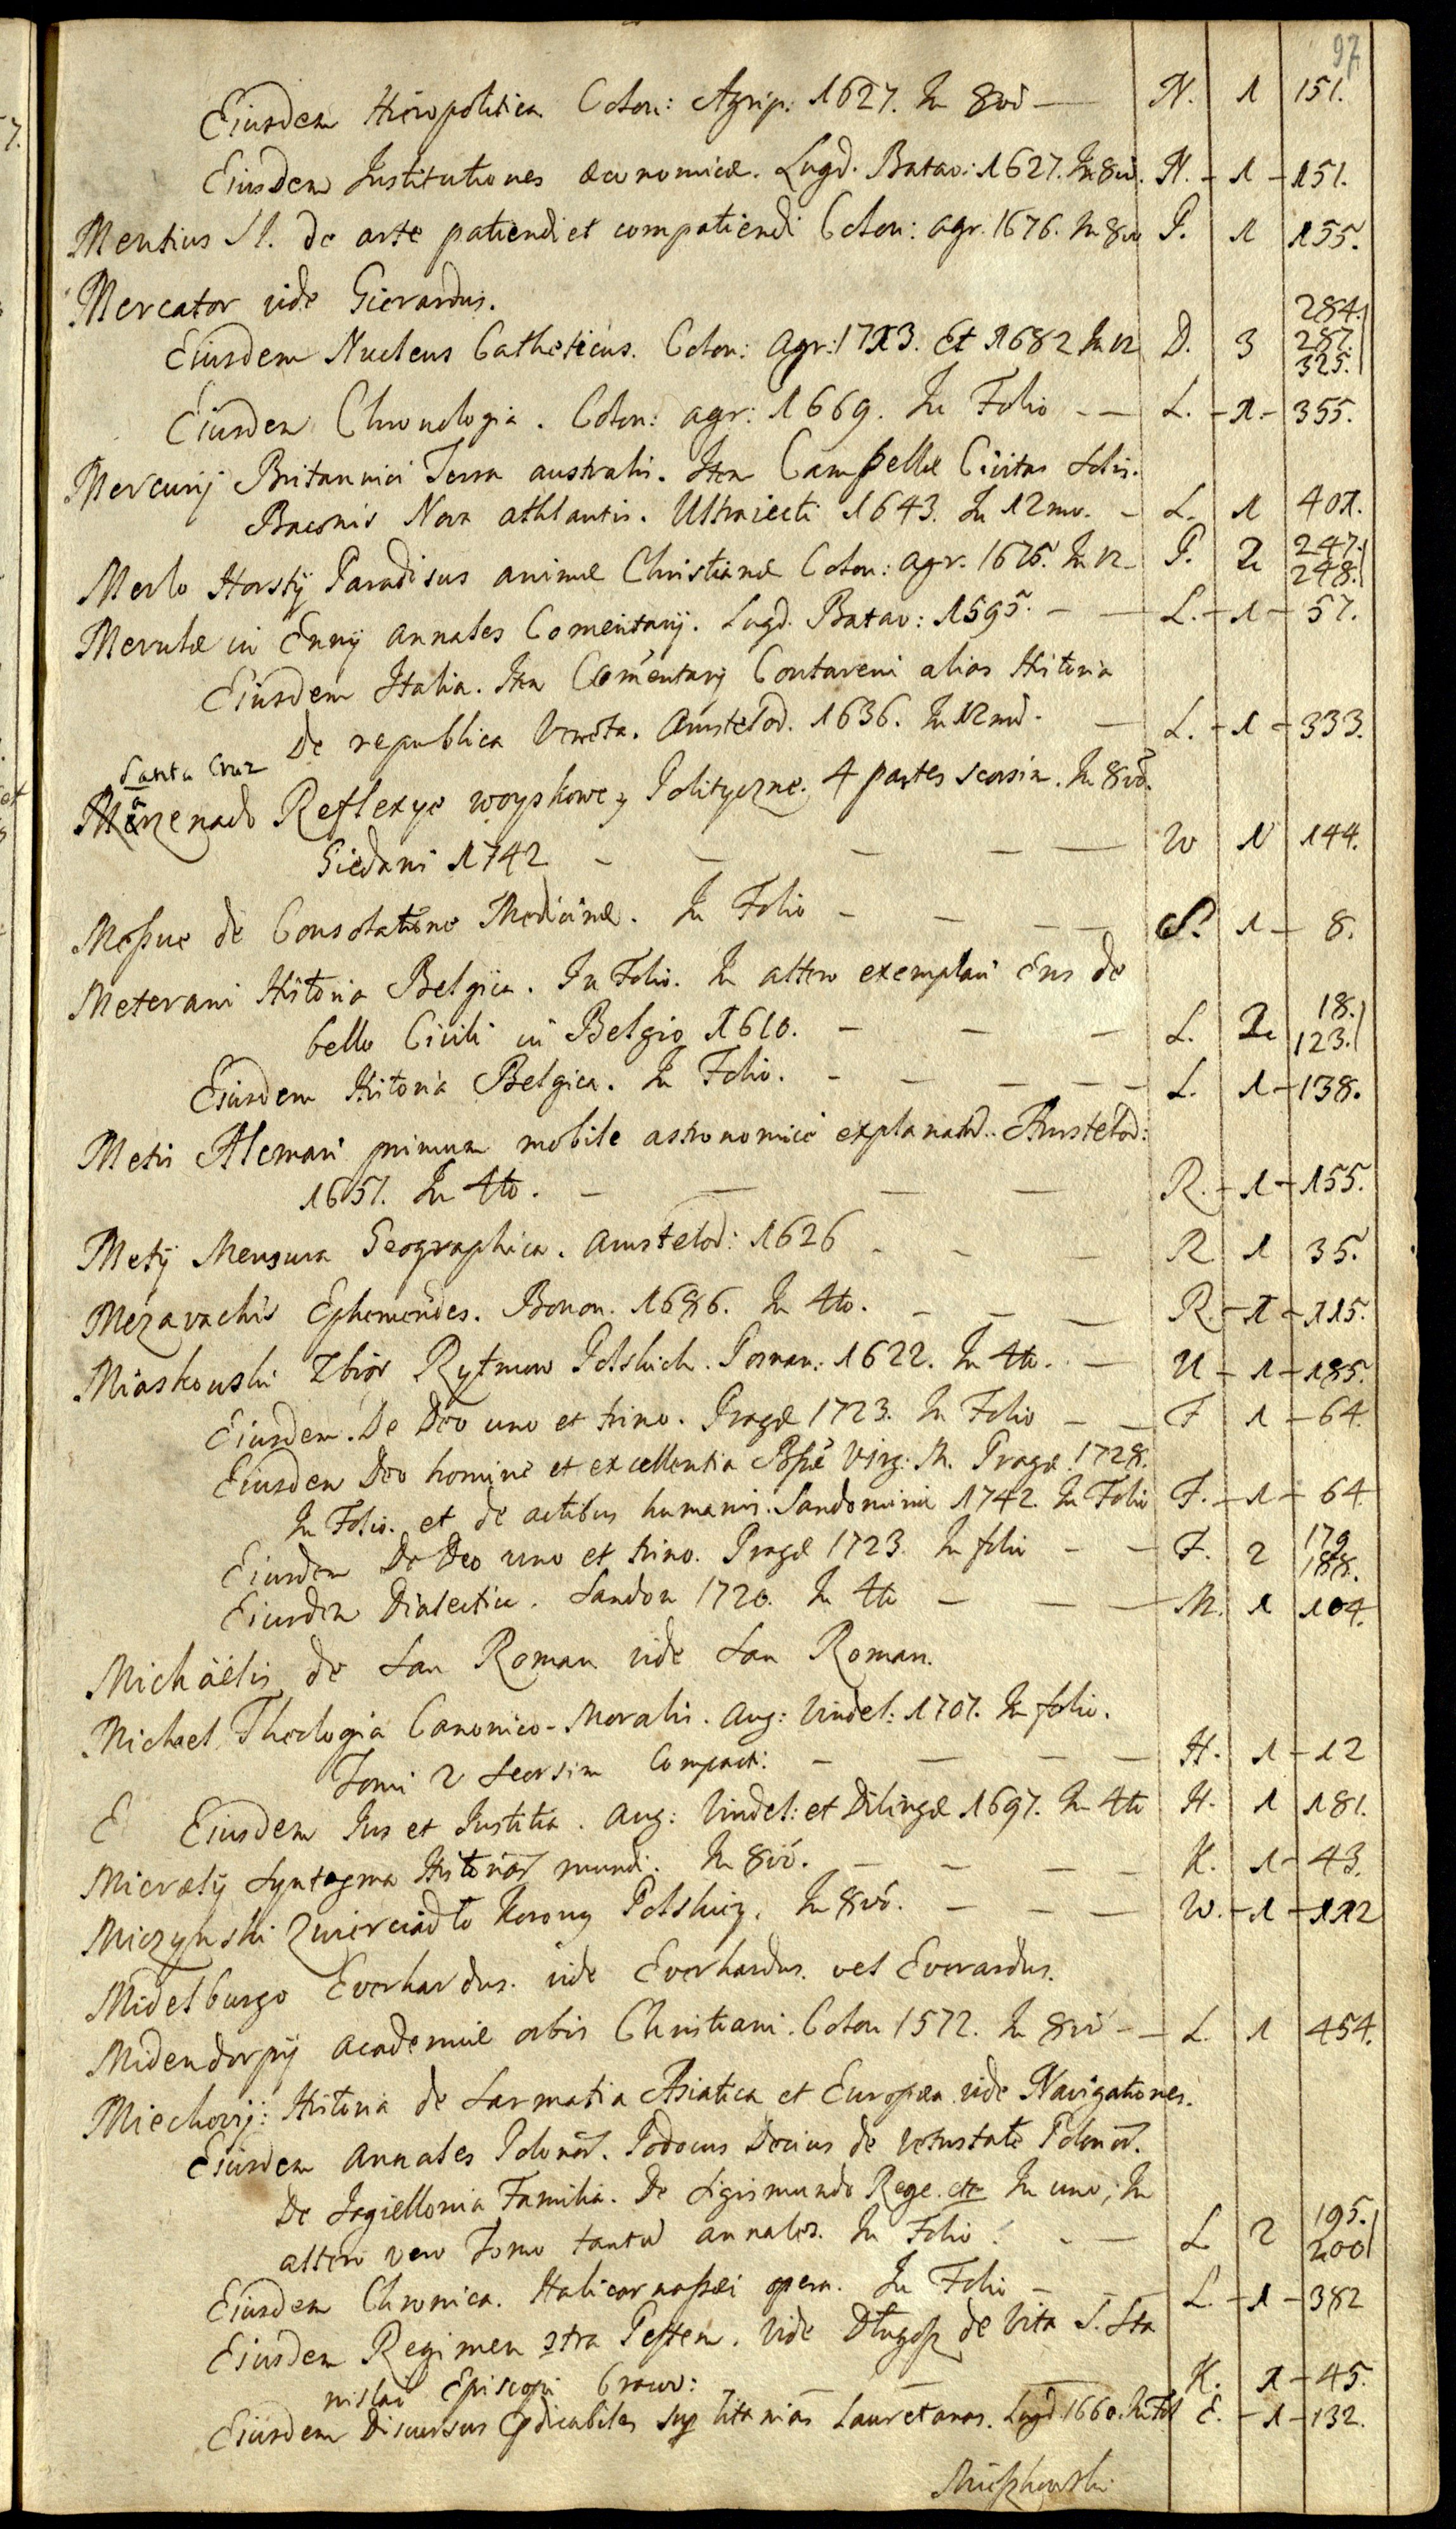 97.
Eiusdem Hieropolitica Colon: Agrip: 1627. In 8vo — N. 1 151.
Eiusdem Institutiones œconomicæ. Lugd. Batav: 1627. In 8vo. N. - 1 - 151.
Mentius Sl. de arte patiendi et compatiendi Colon: agr. 1676. In 8vo P. 1 155.
Mercator vide Gierardus.
Eiusdem Nucleus Catheticus. Colon: Agr: 1713. Et 1682 In 12 D. 3 284. 287. 325.
Eiusdem Chronologia. Colon: agr: 1669. In Folio - — L. - 1 - 355.
Mercurij Britannici Terra australis. Item Campellæ Civitas Solis.
Baconis Nova athlantis. Ultraiecti 1643. In 12mo. - L. 1 401.
Merlo Horstij Paradisus animæ Christianæ Colon: agr. 1675. In 12 P. 2 247. 248.
Merulæ in Ennij annales Comentarij. Lugd. Batav: 1595. - — L. - 1 - 57.
Eiusdem Italia. Item Comentarij Contareni alias Historia
De republica Veneta. Amstelod. 1636. In 12mo. — L. - 1 - 333.
Santa Cruz
Marzenado Reflexye woyskowe y Polityczne. 4 partes seorsim. In 8vo.
Giedani 1742 - — - - — W 1 144.
Mesue de Consolatione Medicinæ. In Folio - — - — S. 1 - 8.
Meterani Historia Belgica. In Folio. In altero exemplari Ens de
bello Civili in Belgio 1610. - — — L. 2 18. 123.
Eiusdem Historia Belgica. In Folio. - - - - - L. 1 - 138.
Metis Alcmari primum mobile astronomice explanatu. Amstelod:
1651. In 4to. - — — — R. - 1 - 155.
Metij Mensura Geographica. Amstelod: 1626 - - — R 1 35.
Mezavachis Ephemerides. Bonon. 1686. In 4to. - - — R. - 1 - 115.
Miaskowski Zbior Rytmow Polskich. Posnan: 1622. In 4to. - U - 1 - 185.
Eiusdem. De Deo uno et trino. Pragæ 1723. In Folio - - F 1 - 64.
Eiusdem Deo homine et excellentia Bssæ Virg: M. Pragæ 1728.
In Folio. et de actibus humanis. Sandomiriæ 1742. In Folio F. - 1 - 64
Eiusdem De Deo uno et trino. Pragæ 1723. In folio - - F. 2 179 188.
Eiusdem Dialectica. Sandom 1720. In 4to - — — M. 1 104.
Michäelis de San Roman vide San Roman.
Michael Theologia Canonico-Moralis. Aug: Vindel: 1707. In folio.
Tomi 2 Seorsim Compact: - — - — H. 1 - 12
E Eiusdem Jus et Justitia. Aug: Vindel: et Dilingæ 1697. In 4to H. 1 181.
Micrælij Syntagma Historiar mundi. In 8vo. - - - - K. 1 - 43.
Miczynski Zwierciadło Korony Polskiey. In 8vo. - - - W. - 1 - 112
Midelburgo Everhardus. vide Everhardus. vel Everardus.
Midendorpij academiæ orbis Christiani. Colon 1572. In 8vo - - L. 1 454.
Miechovij: Historia de Sarmatia Asiatica et Europæa vide Navigationes.
Eiusdem Annales Polonor. Jodocus Decius de Vetustate Polonor.
De Jagiellonia Familia. De Sigismundo Rege. etc In uno; In
altero vero Tomo tantu annales. In Folio. - — L 2 195. 200
Eiusdem Chronica. Halicarnassæi opera. In Folio - - — L. - 1 - 382
Eiusdem Regimen 2tra Pestem. Vide Długosz de Vita S. Sta
nislai Episcopi Cracov: - — — K. 1 - 45.
Eiusdem Discursus pdicabiles sup litanias Lauretanas. Lugd: 1660. In Fol E. - 1 - 132.
Mieszkowski